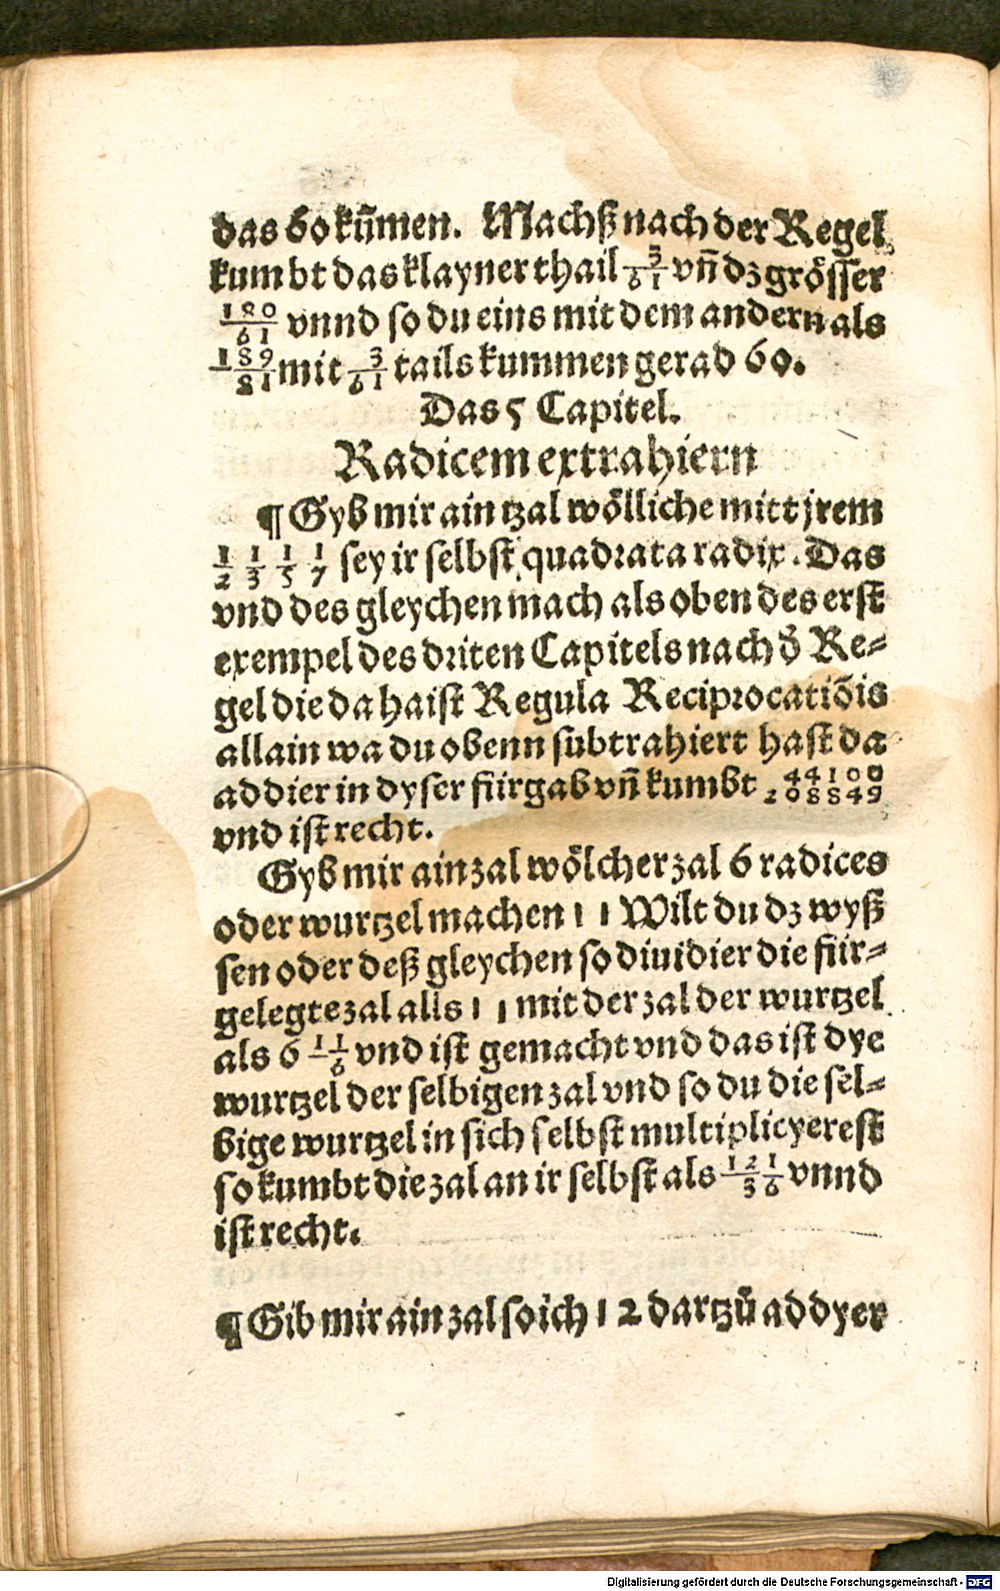 das 60 kūmen. Machß nach der Regel
kumbt das klayner thail 3/61 vn̄ dz grösser
180/61 vnnd so du eins mit dem andern als
189/81 mit 3/61 tails kummen gerad 60.
Das 5 Capitel.
Radicem extrahiern
¶ Gyb mir ain tzal wölliche mitt jrem
1/2 1/3 1/5 1/7 sey ir selbst quadrata radix. Das
vnd des gleychen mach als oben des erst
exempel des driten Capitels nach d̄ Re⸗
gel die da haist Regula Reciprocatiōis
allain wa du obenn subtrahiert hast da
addier in dyser fürgab vn̄ kumbt 44100/208849
vnd ist recht.
Gyb mir ain zal wölcher zal 6 radices
oder wurtzel machen 11 Wilt du dz wyß
sen oder deß gleychen so diuidier die für⸗
gelegte zal alls 11 mit der zal der wurtzel
als 6 11/6 vnd ist gemacht vnd das ist dye
wurtzel der selbigen zal vnd so du die sel⸗
bige wurtzel in sich selbst multiplicyerest
so kumbt die zal an ir selbst als 121/36 vnnd
ist recht.
¶ Gib mir ain zal so ich 12 dartzů addyer
Digitalisierung gefördert durch die Deutsche Forschungsgemeinschaft - DFG